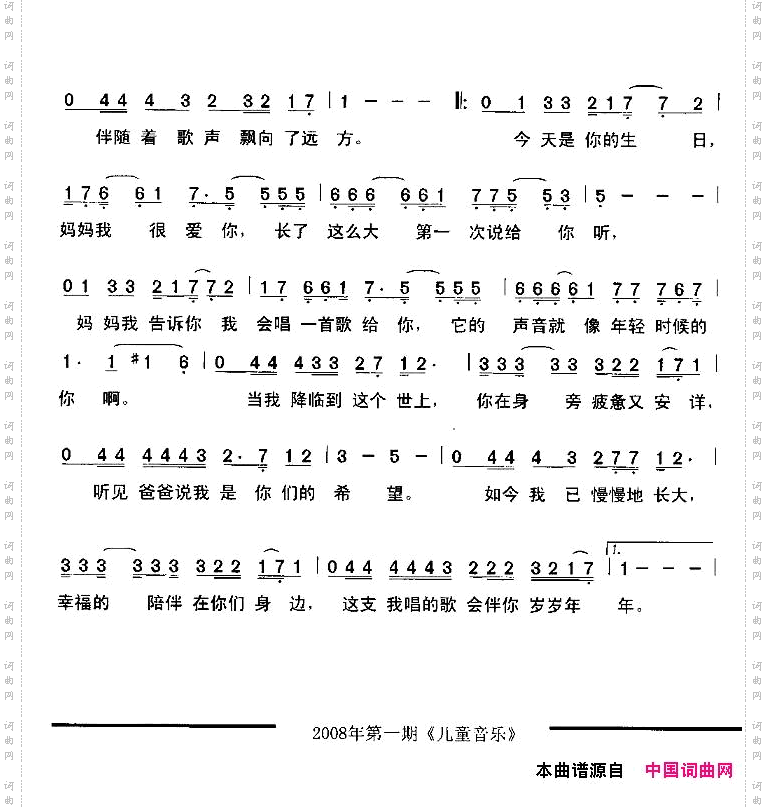 0 44 4 3 2 32 17 | 1 - - - ‖: 0 1 33 217 7 2 |
伴随着 歌声 飘向了远方。 今天是你的生 日,
176 61 7· 5 555 | 666 661 775 53 | 5 - - - |
妈妈我 很 爱 你, 长了 这么大 第一 次说给 你 听,
01 33 21772 | 17 661 7· 5 555 | 66661 77 767 |
妈 妈我 告诉你 我 会唱 一首歌 给 你, 它的 声音就 像 年轻 时候的
1· 1 #1 6 | 0 44 433 27 12· | 333 33 322 171 |
你 啊。 当我 降临到 这个 世上, 你在身 旁 疲惫又 安 详,
0 44 4443 2· 7 12 | 3 - 5 - | 0 44 4 3 277 12· |
听见 爸爸说我 是 你 们的 希 望。 如今 我 已 慢慢地 长大,
333 333 322 171 | 044 4443 222 3217 | 1. 1 - - - |
幸福的 陪伴 在你们 身 边, 这支 我唱的歌 会伴你 岁岁年 年。
2008年第一期《儿童音乐》
本曲谱源自 中国词曲网